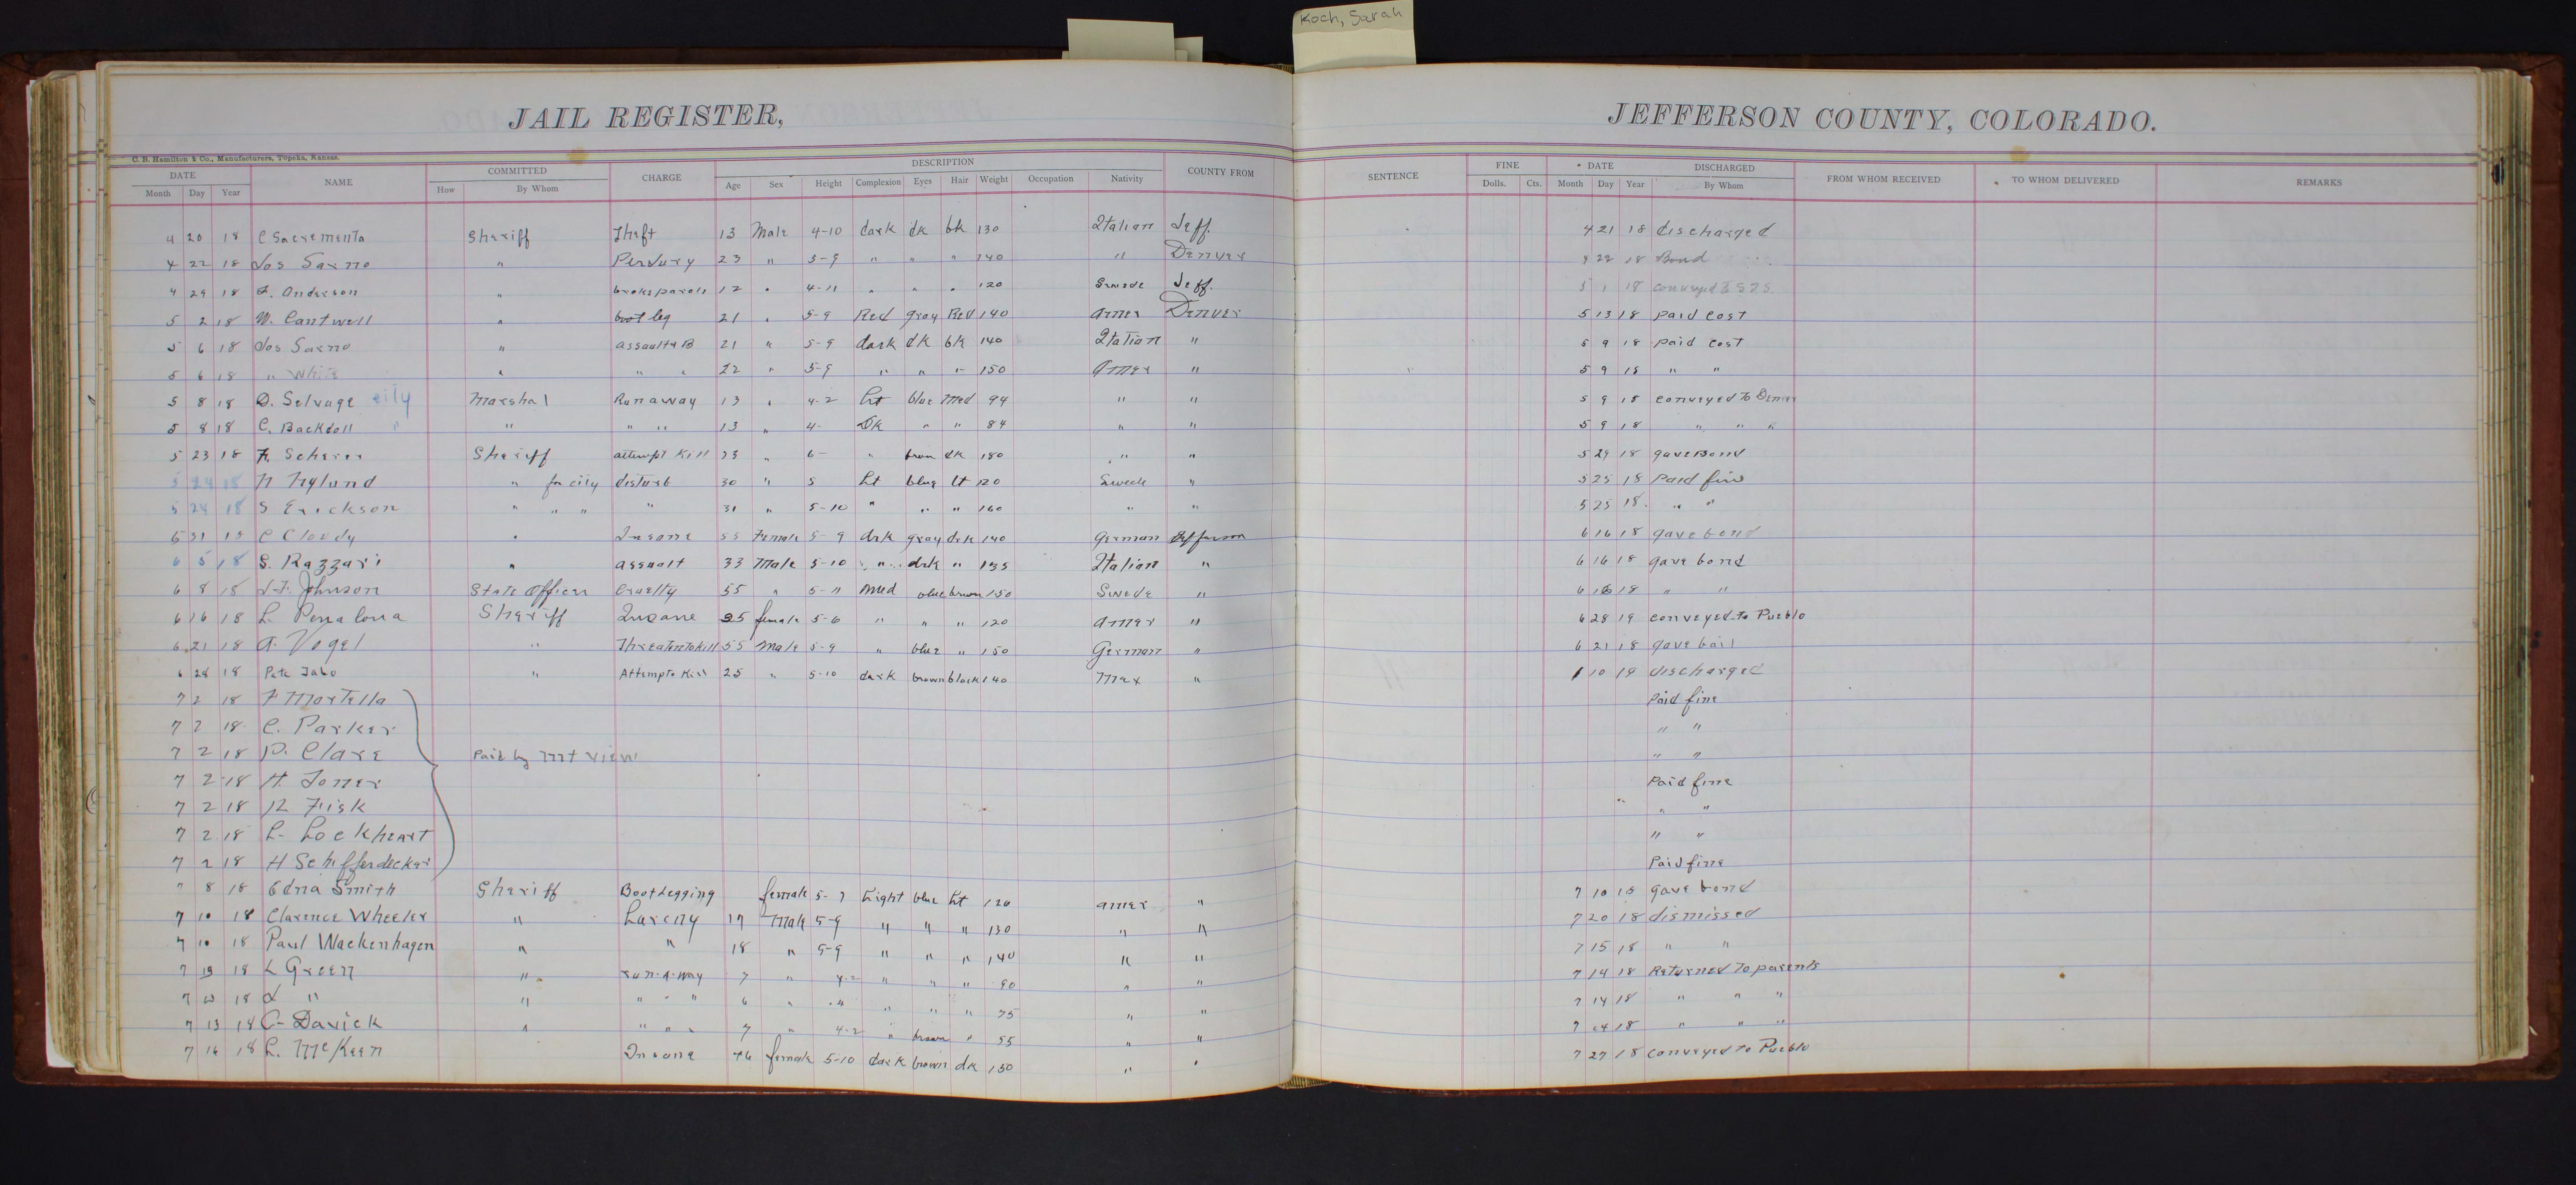 Koch, Sarah
JAIL REGISTER, JEFFERSON COUNTY, COLORADO.
C. B. Hamilton & Co., Manufacturers, Topeka, Kansas.
DATE NAME COMMITTED CHARGE DESCRIPTION COUNTY FROM SENTENCE FINE DATE DISCHARGED FROM WHOM RECEIVED TO WHOM DELIVERED REMARKS
Month Day Year How By Whom Age Sex Height Complexion Eyes Hair Weight Occupation Nativity Dolls. Cts. Month Day Year By Whom
4 20 18 C Sacrementa Sheriff Theft 13 Male 4-10 dark dk bk 130 Italian Jeff. 4 21 18 discharged
4 22 18 Jos Sarno " Perjury 23 " 5-9 " " " 140 " Denver 4 22 18 Bond
4 29 18 A. Anderson " broke parole 12 " 4-11 " " " 120 Swede Jeff. 5 1 18 conveyed to S I S
5 2 18 W. Cantwell " boot leg 21 " 5-9 Red gray Red 140 Amer Denver 5 13 18 paid cost
5 6 18 Jos Sarno " assault & B 21 " 5-9 dark dk bk 140 Italian " 5 9 18 paid cost
5 6 18 " White " " " 22 " 5-9 " " " 150 Amer " 5 9 18 " "
5 8 18 D. Selvage city Marshal Runaway 13 " 4-2 Lt blue Med 94 " " 5 9 18 conveyed to Denver
5 8 18 C. Backdoll " " " " 13 " 4- Dk " " 84 " " 5 9 18 " " "
5 23 18 F. Scherer Sheriff attempt Kill 23 " 6- " brown dk 180 " " 5 29 18 gave Bond
5 24 18 N Nylund " for city disturb 30 " 5 Lt blue lt 120 Swede " 5 25 18 Paid fine
5 24 18 S Erickson " " " " 31 " 5-10 " " " 160 " " 5 25 18 " "
5 31 18 C Cloudy " Insane 55 Female 5-9 drk gray drk 140 German Jefferson 6 16 18 gave bond
6 5 18 S. Razzari " assault 33 Male 5-10 " drk " 135 Italian " 6 16 18 gave bond
6 8 18 J.F. Johnson State Officer Cruelty 55 " 5-11 Med blue brown 150 Swede " 6 16 18 " "
6 16 18 L. Penalona Sheriff Insane 35 female 5-6 " " " 120 Amer " 6 28 19 conveyed to Pueblo
6 21 18 A. Vogel " Threaten to Kill 55 Male 5-9 " blue " 150 German " 6 21 18 gave bail
6 28 18 Pete Jabo " Attempt to Kill 25 " 5-10 dark brown black 140 Mex " 1 10 19 discharged
7 2 18 F Mortella Paid fine
7 2 18 C. Parker " "
7 2 18 P. Clare Paid by Mt view " "
7 2 18 H. Joner Paid fine
7 2 18 R Fisk " "
7 2 18 L. Lockheart " "
7 2 18 H Schifferdecker Paid fine
7 8 18 Edna Smith Sheriff Bootlegging female 5-7 Light blue Lt 120 Amer " 7 10 18 gave bond
7 10 18 Clarence Wheeler " Larceny 17 Male 5-9 " " " 130 " " 7 20 18 dismissed
7 10 18 Paul Wackenhagen " " 18 " 5-9 " " " 140 " " 7 15 18 " "
7 13 18 L Green " run-a-way 7 " 4-2 " " " 90 " " 7 14 18 Returned to parents
7 13 18 " " " " " 6 " " " " " 75 " " 7 14 18 " " "
7 13 18 C- Davick " " " " 7 " 4-2 " brown " 55 " " 7 14 18 " " "
7 16 18 L. McKeen Insane female 5-10 dark brown dk 150 " " 7 27 18 conveyed to Pueblo